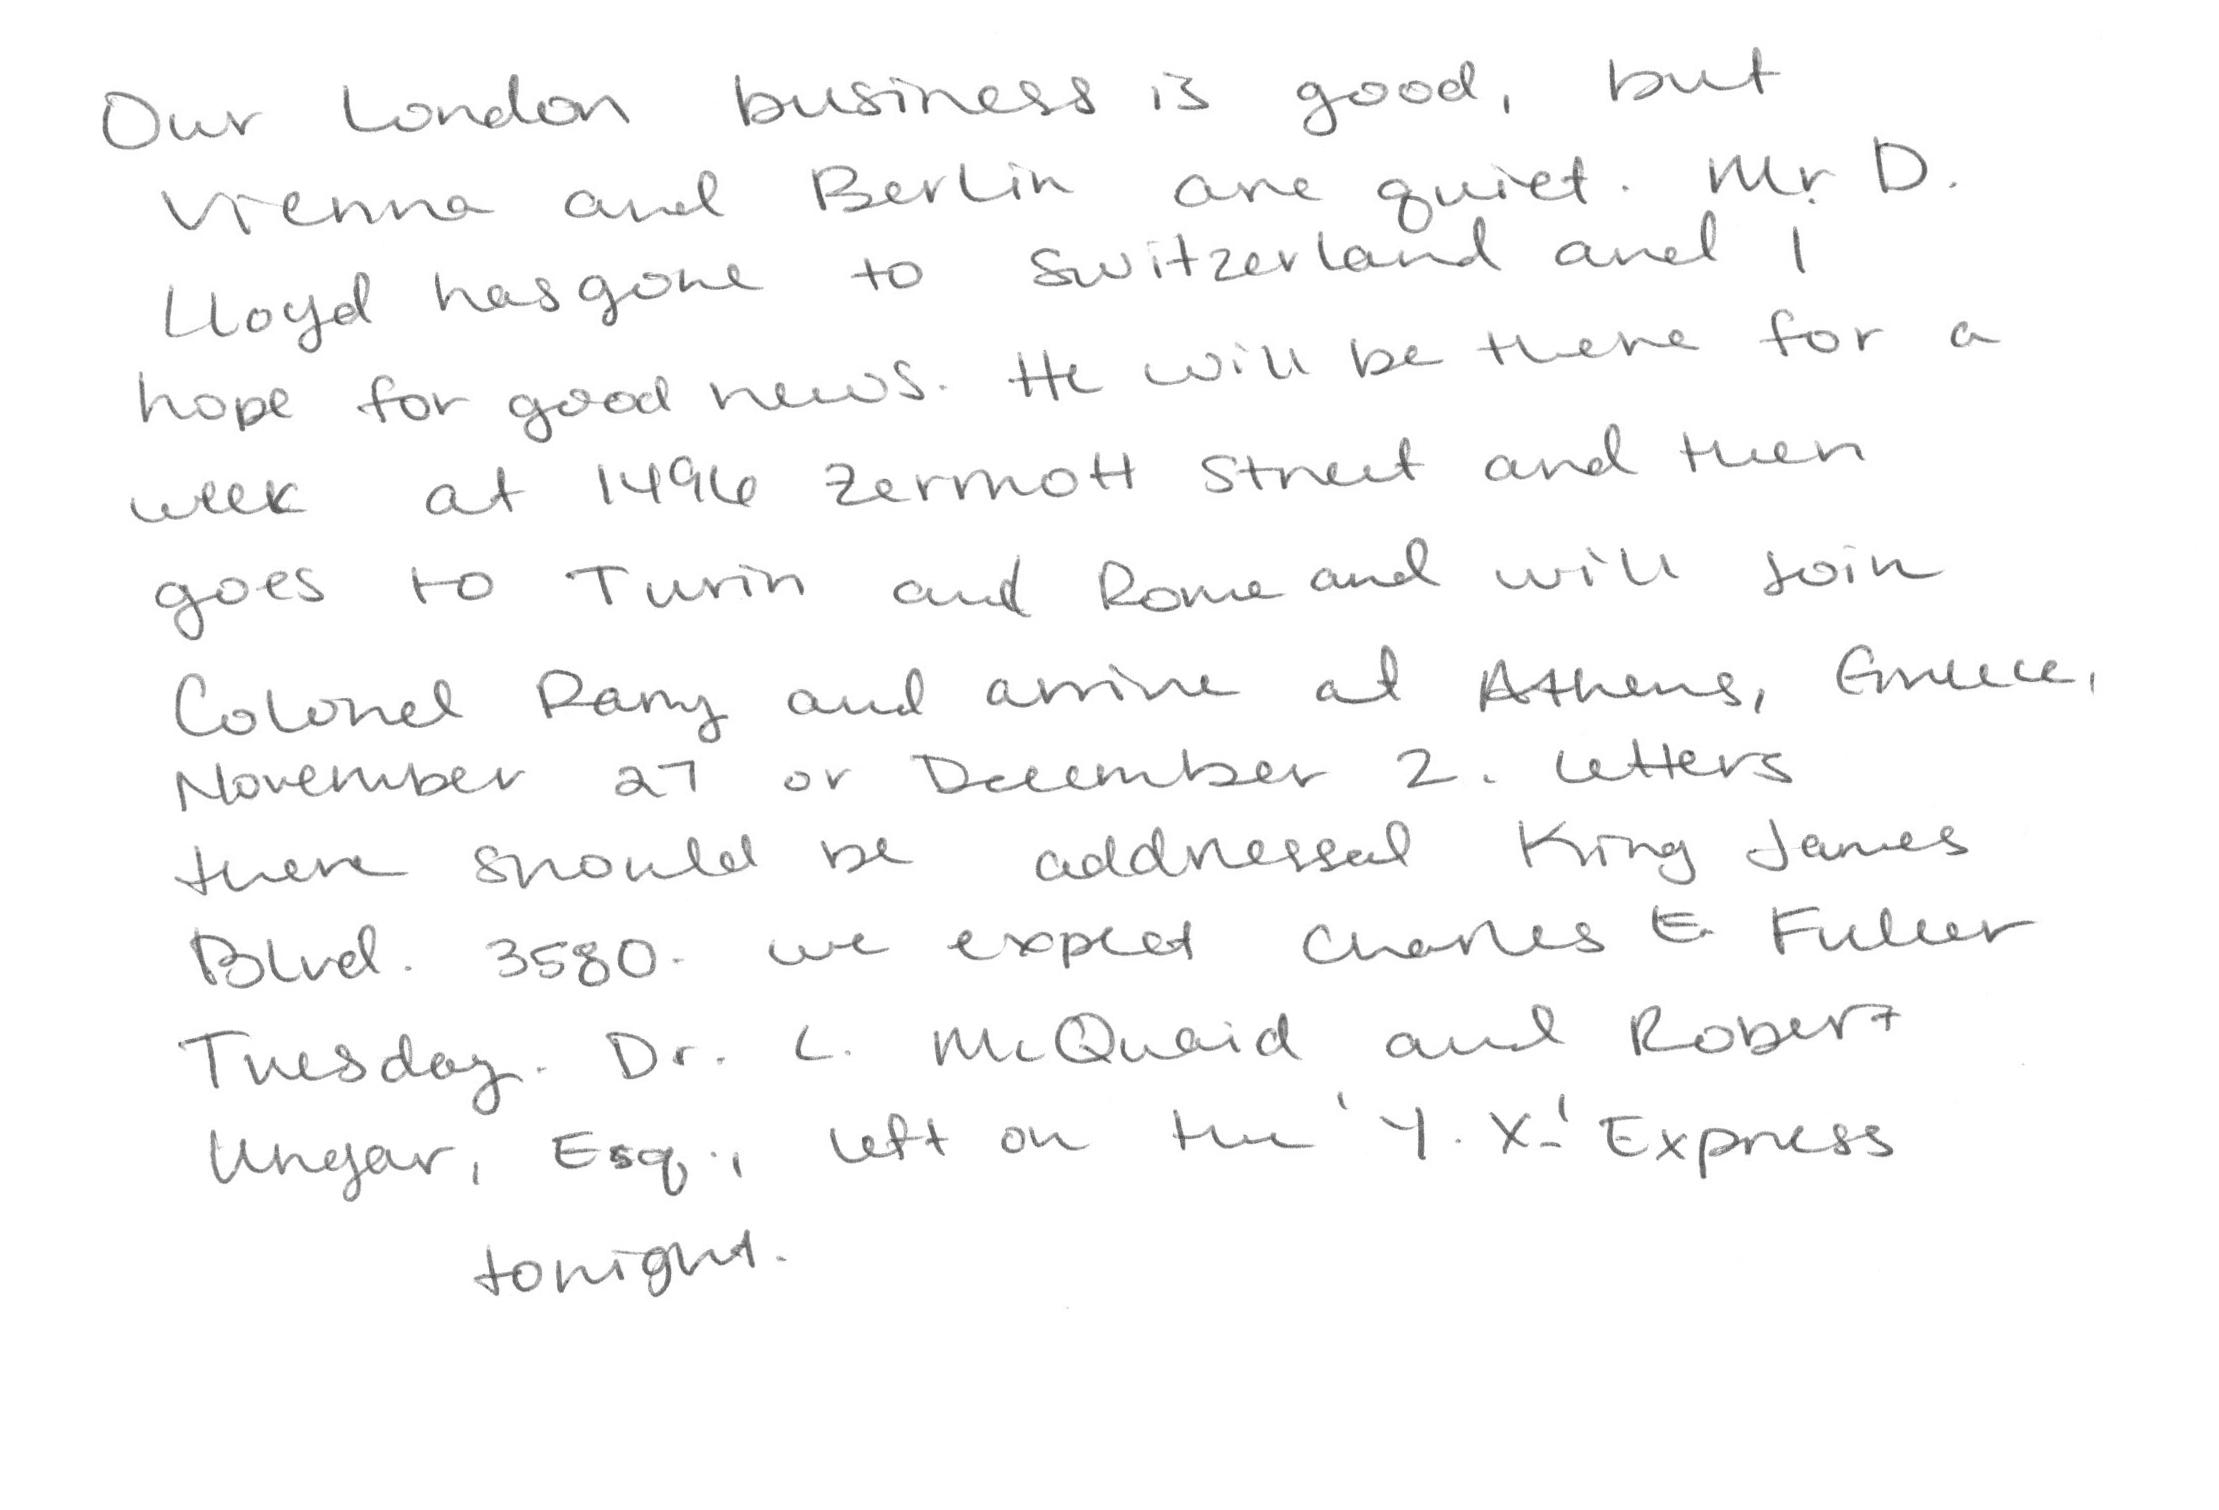 Our London business is good, but
Vienna and Berlin are quiet. Mr. D.
Lloyd has gone to Switzerland and I
hope for good news. He will be there for a
week at 1496 Zermott Street and then
goes to Turin and Rome and will join
Colonel Parry and arrive at Athens, Greece,
November 27 or December 2. Letters
there should be addressed King James
Blvd. 3580. We expect Charles E. Fuller
Tuesday. Dr. L. McQuaid and Robert
Ungar, Esq., left on the 'Y. X.' Express
tonight.